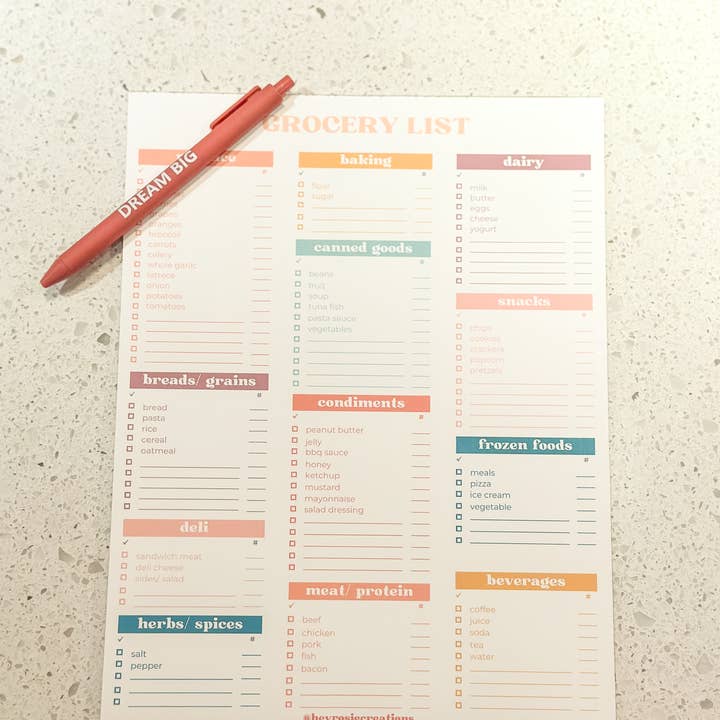 GROCERY LIST
DREAM BIG
oranges
broccoli
carrots
celery
whole garlic
lettuce
onion
potatoes
tomatoes
breads/ grains
✓ #
bread
pasta
rice
cereal
oatmeal
deli
✓ #
sandwich meat
deli cheese
sides/ salad
herbs/ spices
✓ #
salt
pepper
baking
✓ #
flour
sugar
canned goods
✓ #
beans
fruit
soup
tuna fish
pasta sauce
vegetables
condiments
✓ #
peanut butter
jelly
bbq sauce
honey
ketchup
mustard
mayonnaise
salad dressing
meat/ protein
✓ #
beef
chicken
pork
fish
bacon
@heyrosiecreations
dairy
✓ #
milk
butter
eggs
cheese
yogurt
snacks
✓ #
chips
cookies
crackers
popcorn
pretzels
frozen foods
✓ #
meals
pizza
ice cream
vegetable
beverages
✓ #
coffee
juice
soda
tea
water